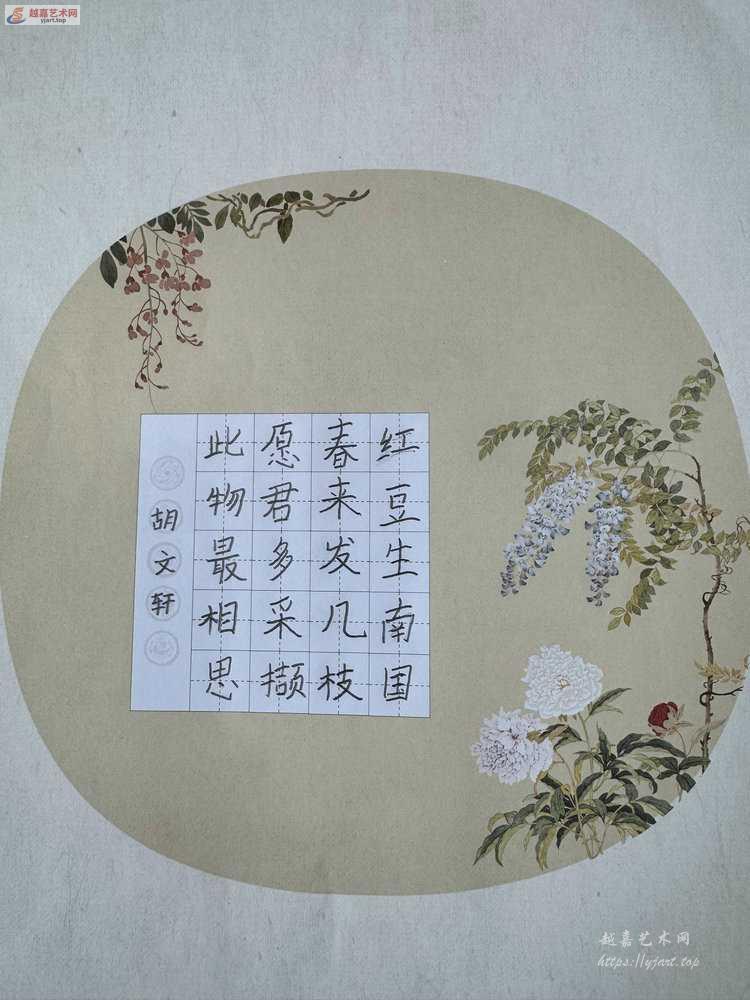 越嘉艺术网
yjart.top
红豆生南国
春来发几枝
愿君多采撷
此物最相思
胡文轩
越嘉艺术网
https://yjart.top